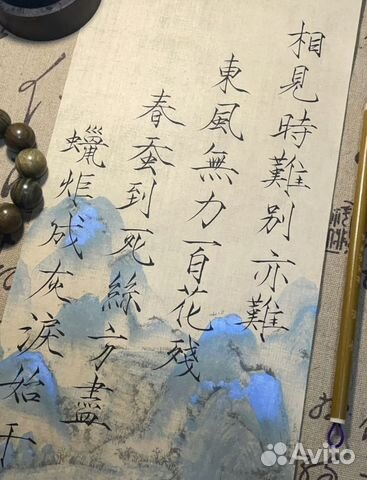 相見時難别亦難
東風無力百花殘
春蚕到死絲方盡
蠟炬成灰淚始干
Avito